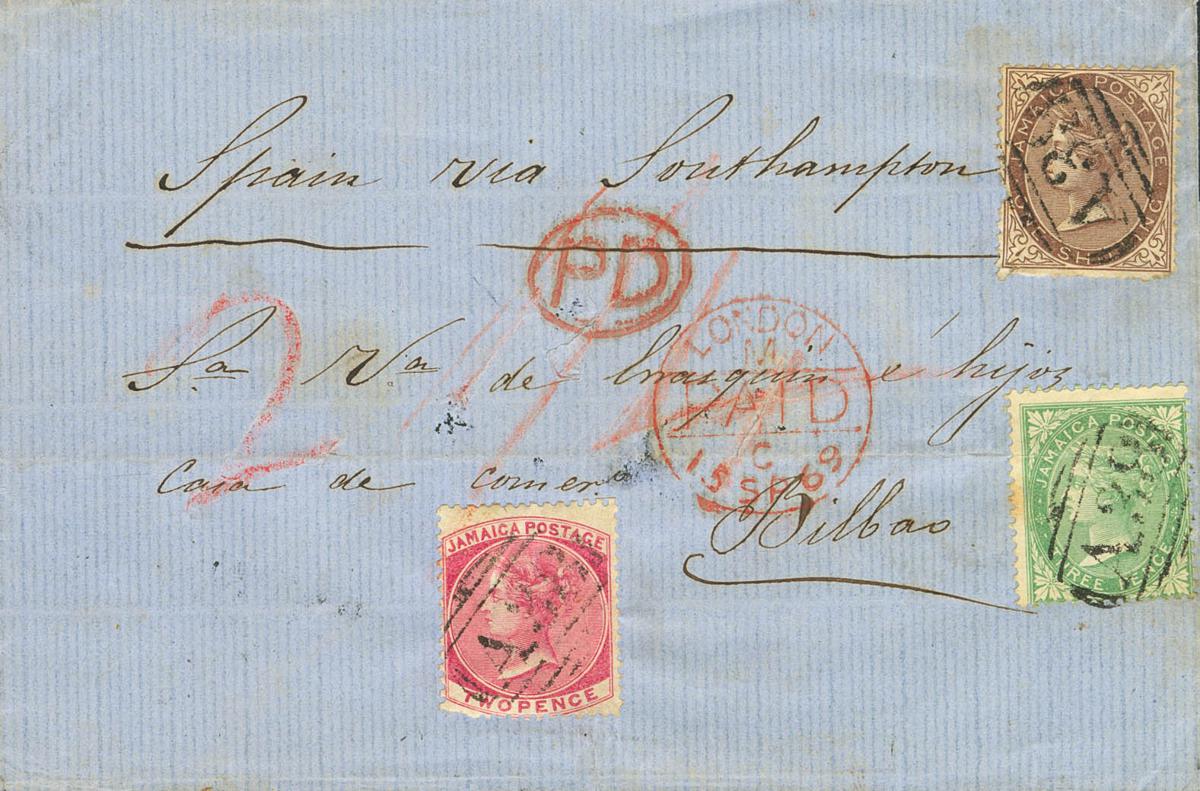 Spain via Southampton
JAMAICA POSTAGE
ONE SHILLING
PD
LONDON
PAID
C
15 SP 69
2
Sra Vda de é hijos
Casa de comer
Bilbao
JAMAICA POSTAGE
THREE PENCE
JAMAICA POSTAGE
TWO PENCE